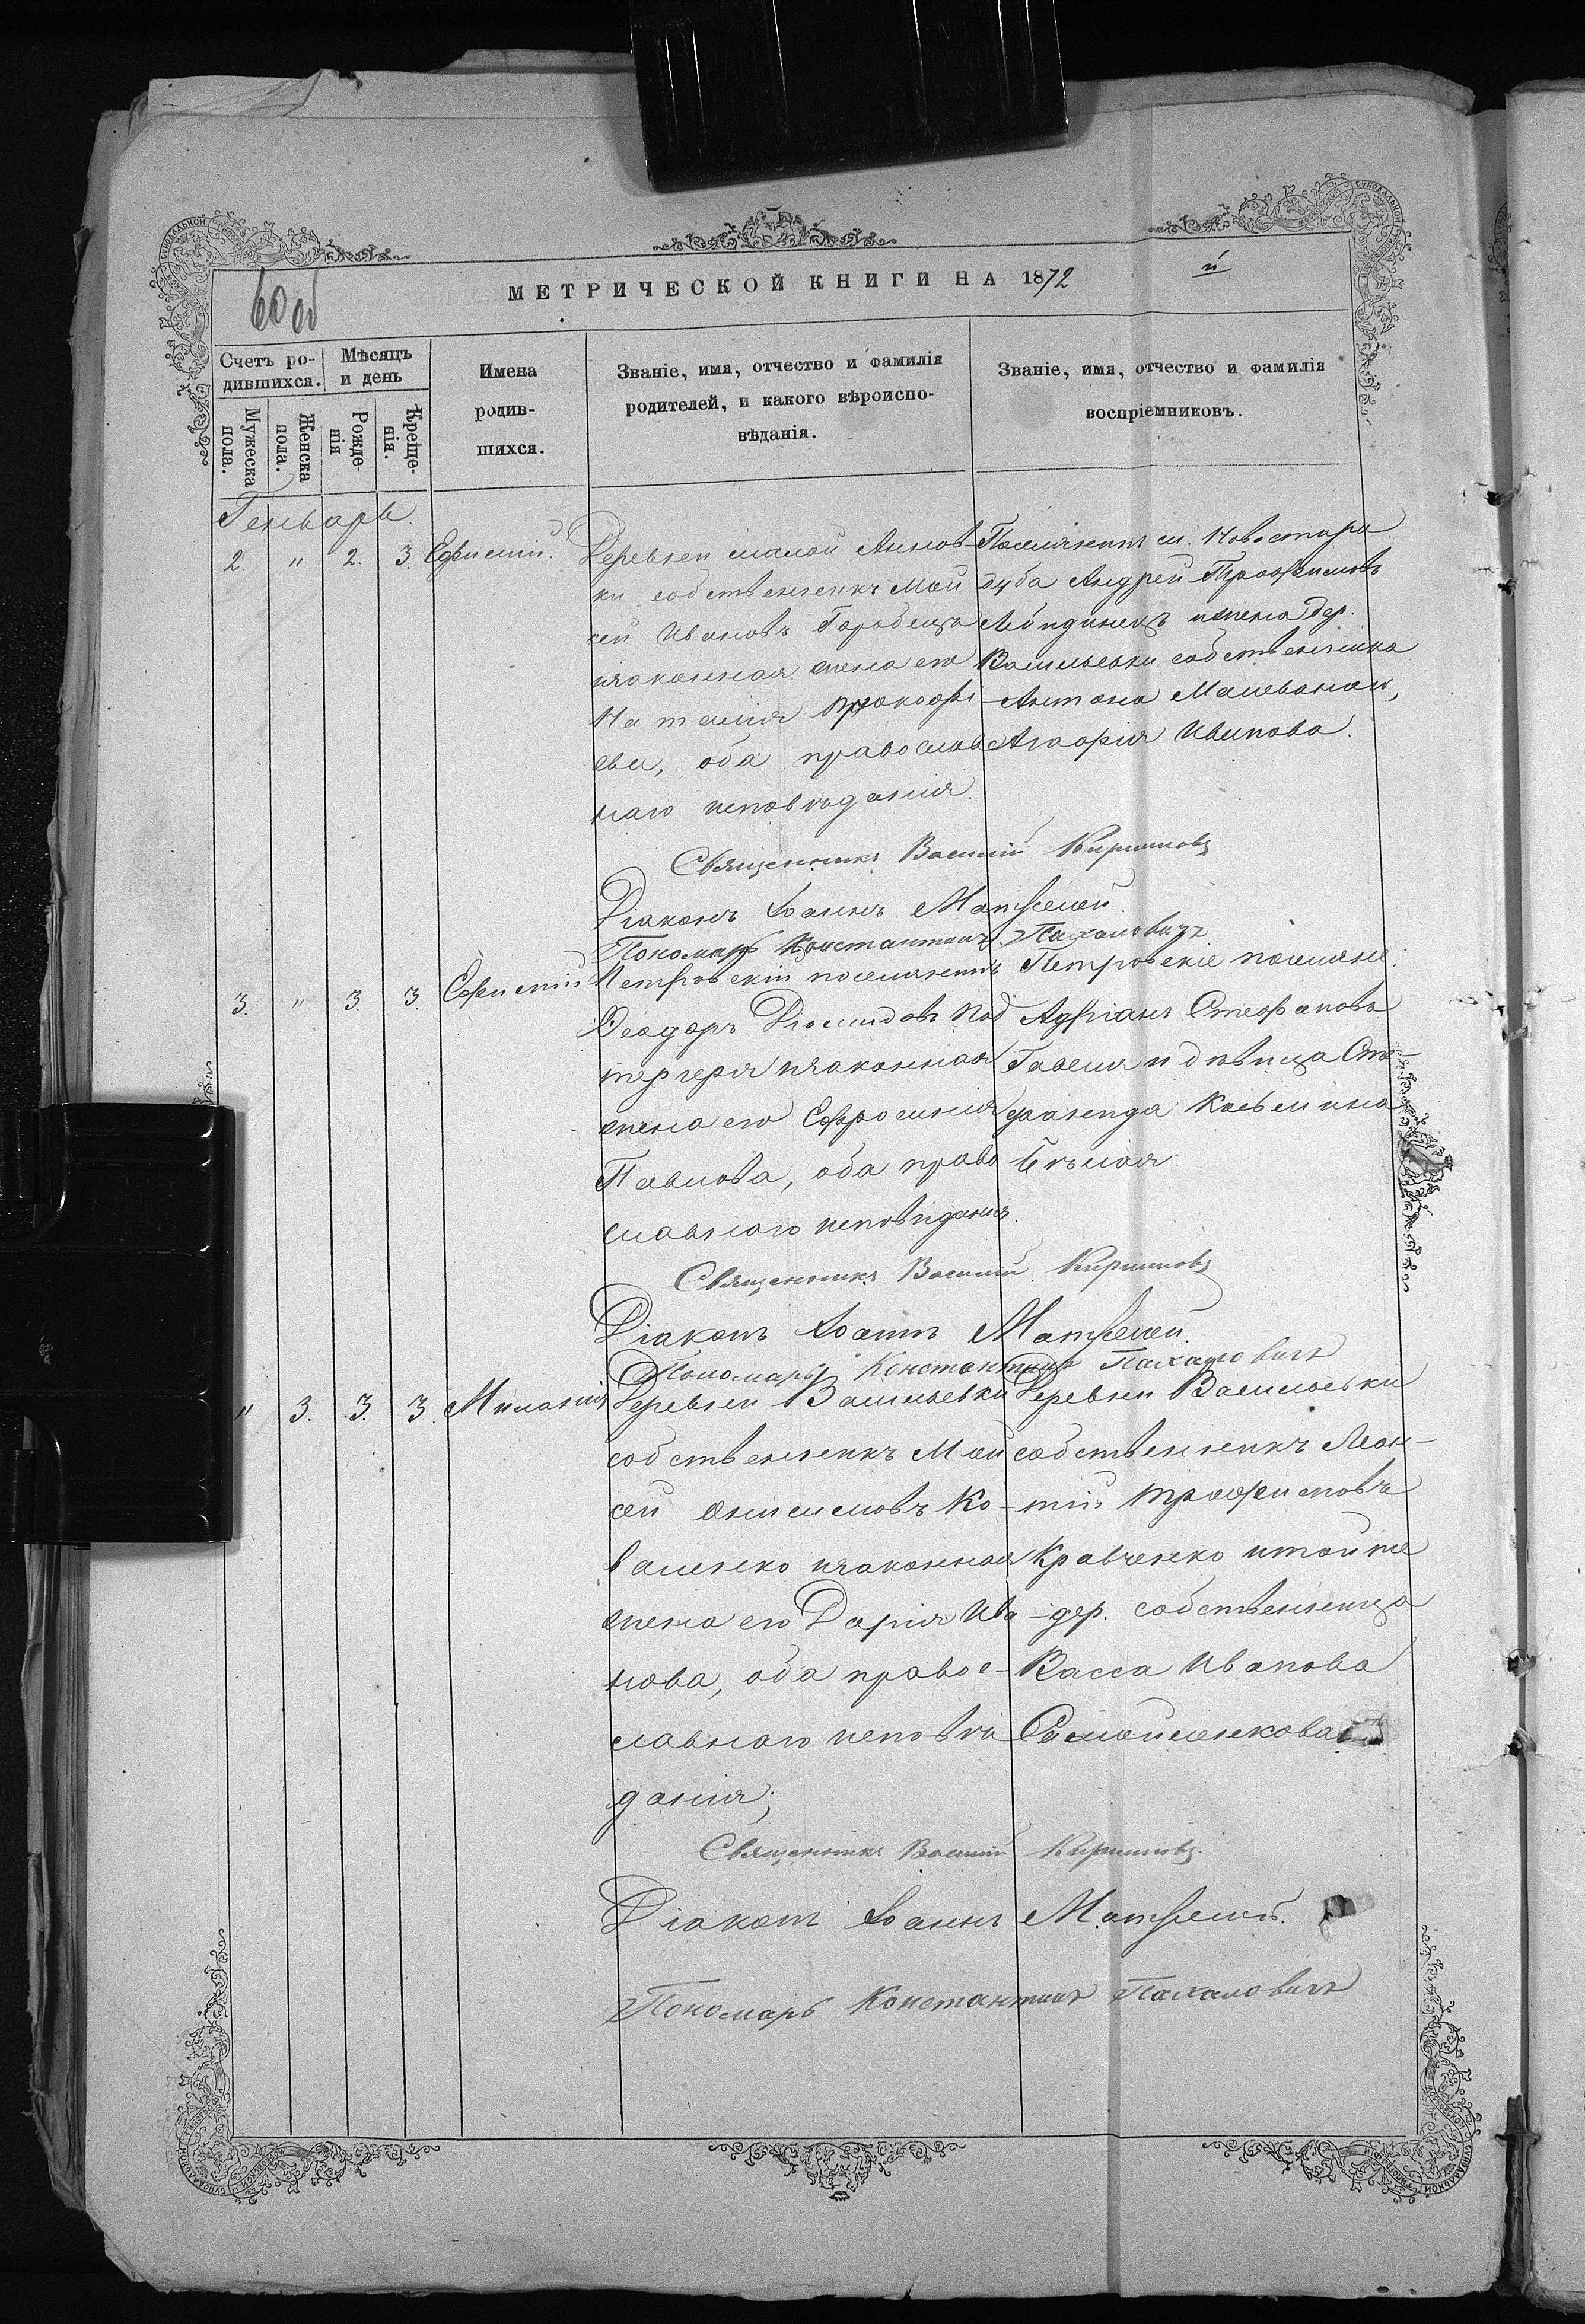 60 об
МЕТРИЧЕСКОЙ КНИГИ НА 1872
й
Счетъ ро-
дившихся.
Мужеска
пола.
Женска
пола.
Мѣсяцъ
и день
Рожде-
нія
Креще-
нія.
Имена
родив-
шихся.
Званіе, имя, отчество и фамилія
родителей, и какого вѣроиспо-
вѣданія.
Званіе, имя, отчество и фамилія
воспріемниковъ.
Генварь.
2. " 2. 3. Ефимій.
Деревни малой Аннов-
ки собственникъ Мой
сей Ивановъ Горобецъ
изаконная жена его
Наталія Прокофі
ева, оба православ
наго исповѣданія.
Поселянинъ с. Новостаро
дуба Андрей Трофимовъ
Лебидинецъ ижена дер.
Васильевки собственника
Антона
Агафія
Священникъ Василій Кирилловъ
Діаконъ Іоаннъ
Пономарь Константинъ
3. " 3. 3. Ефимій
Петровскій поселянинъ
Феодоръ Діомидовъ Под
изаконная
жена его Ефросинія
Павлова, оба право
славнаго исповѣданія.
Петровскіе поселяне:
Адріанъ Стефановъ
и дѣвица Сте-
фанида
Священникъ Василій Кирилловъ
Діаконъ Іоаннъ
Пономарь Константинъ
" 3. 3. 3. Миланія
Деревни Васильевки
собственникъ Мой
сей Анисимовъ Ко-
валенко изаконная
жена его Дарія Ива-
нова, оба правос-
славнаго исповѣ
данія;
Деревни Васильевки
собственникъ Леон-
тій Трофимовъ
Кравченко итойже
дер. собственница
Васса Иванова
Самойленкова
Священникъ Василій Кирилловъ.
Діаконъ Іоаннъ
Пономарь Константинъ